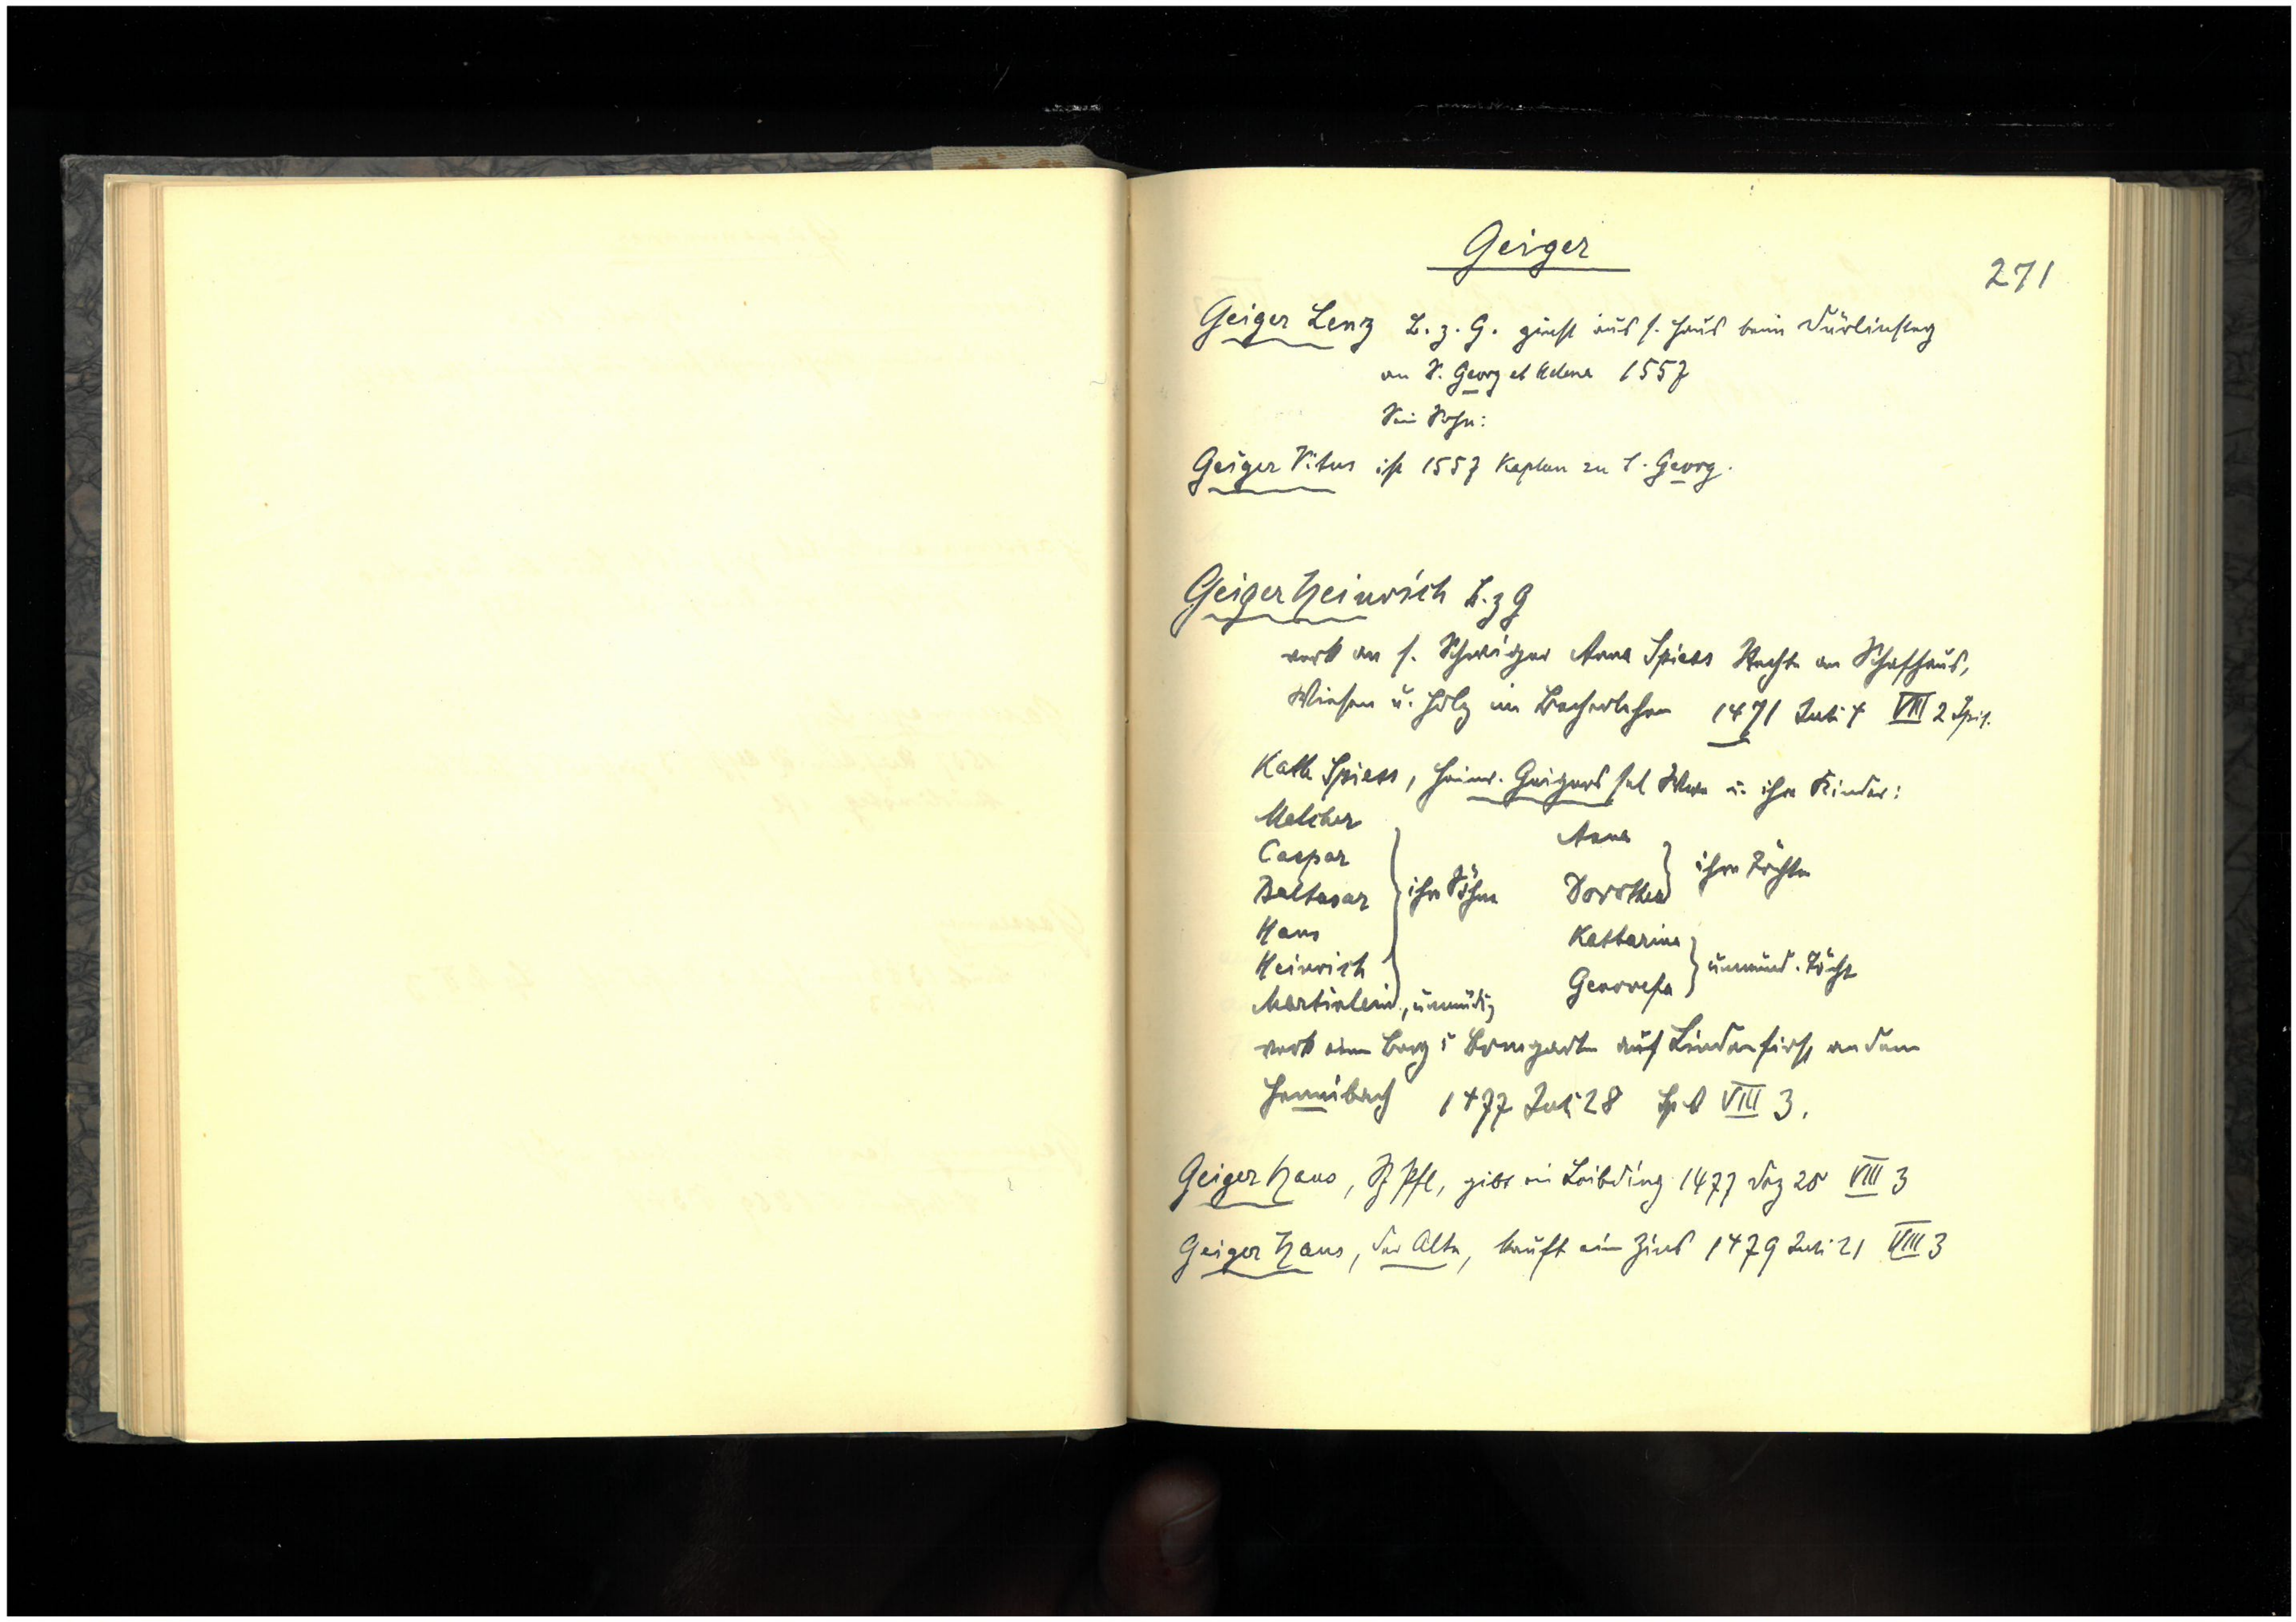 Geiger
271
Geiger Lenz B. z. G. zinst aus s. Haus beim Türlinsteg
an S. Georg et Adena 1557
Sein Sohn:
Geiger Vitus ist 1557 Kaplan zu S. Georg.
Geiger Heinrich B. z G
verk an s. Schwiger Anna Spiess Rechte an Schafhaus,
Wiesen u. Holz im Becherlehen 1471 Juli 4 VIII 2 Spit.
Kath Spiess, Heinr. Geigers sel Wwe u. ihre Kinder:
Melcher
Caspar
Baltasar
Hans
Heinrich
Martinlein, unmündig
ihre Söhne
Anna
Dorothea
ihre Töchter
Katharina
Genovefa
unmünd. Töcht
verk einen Berg i Bomgarten auf Lindenfirst an dem
1477 Juli 28 VIII 3.
Geiger Hans, Pfl, gibt ein Leibding 1477 Dez 20 VIII 3
Geiger Hans, der Alte, kauft ein Zins 1479 Juli 21 VIII 3